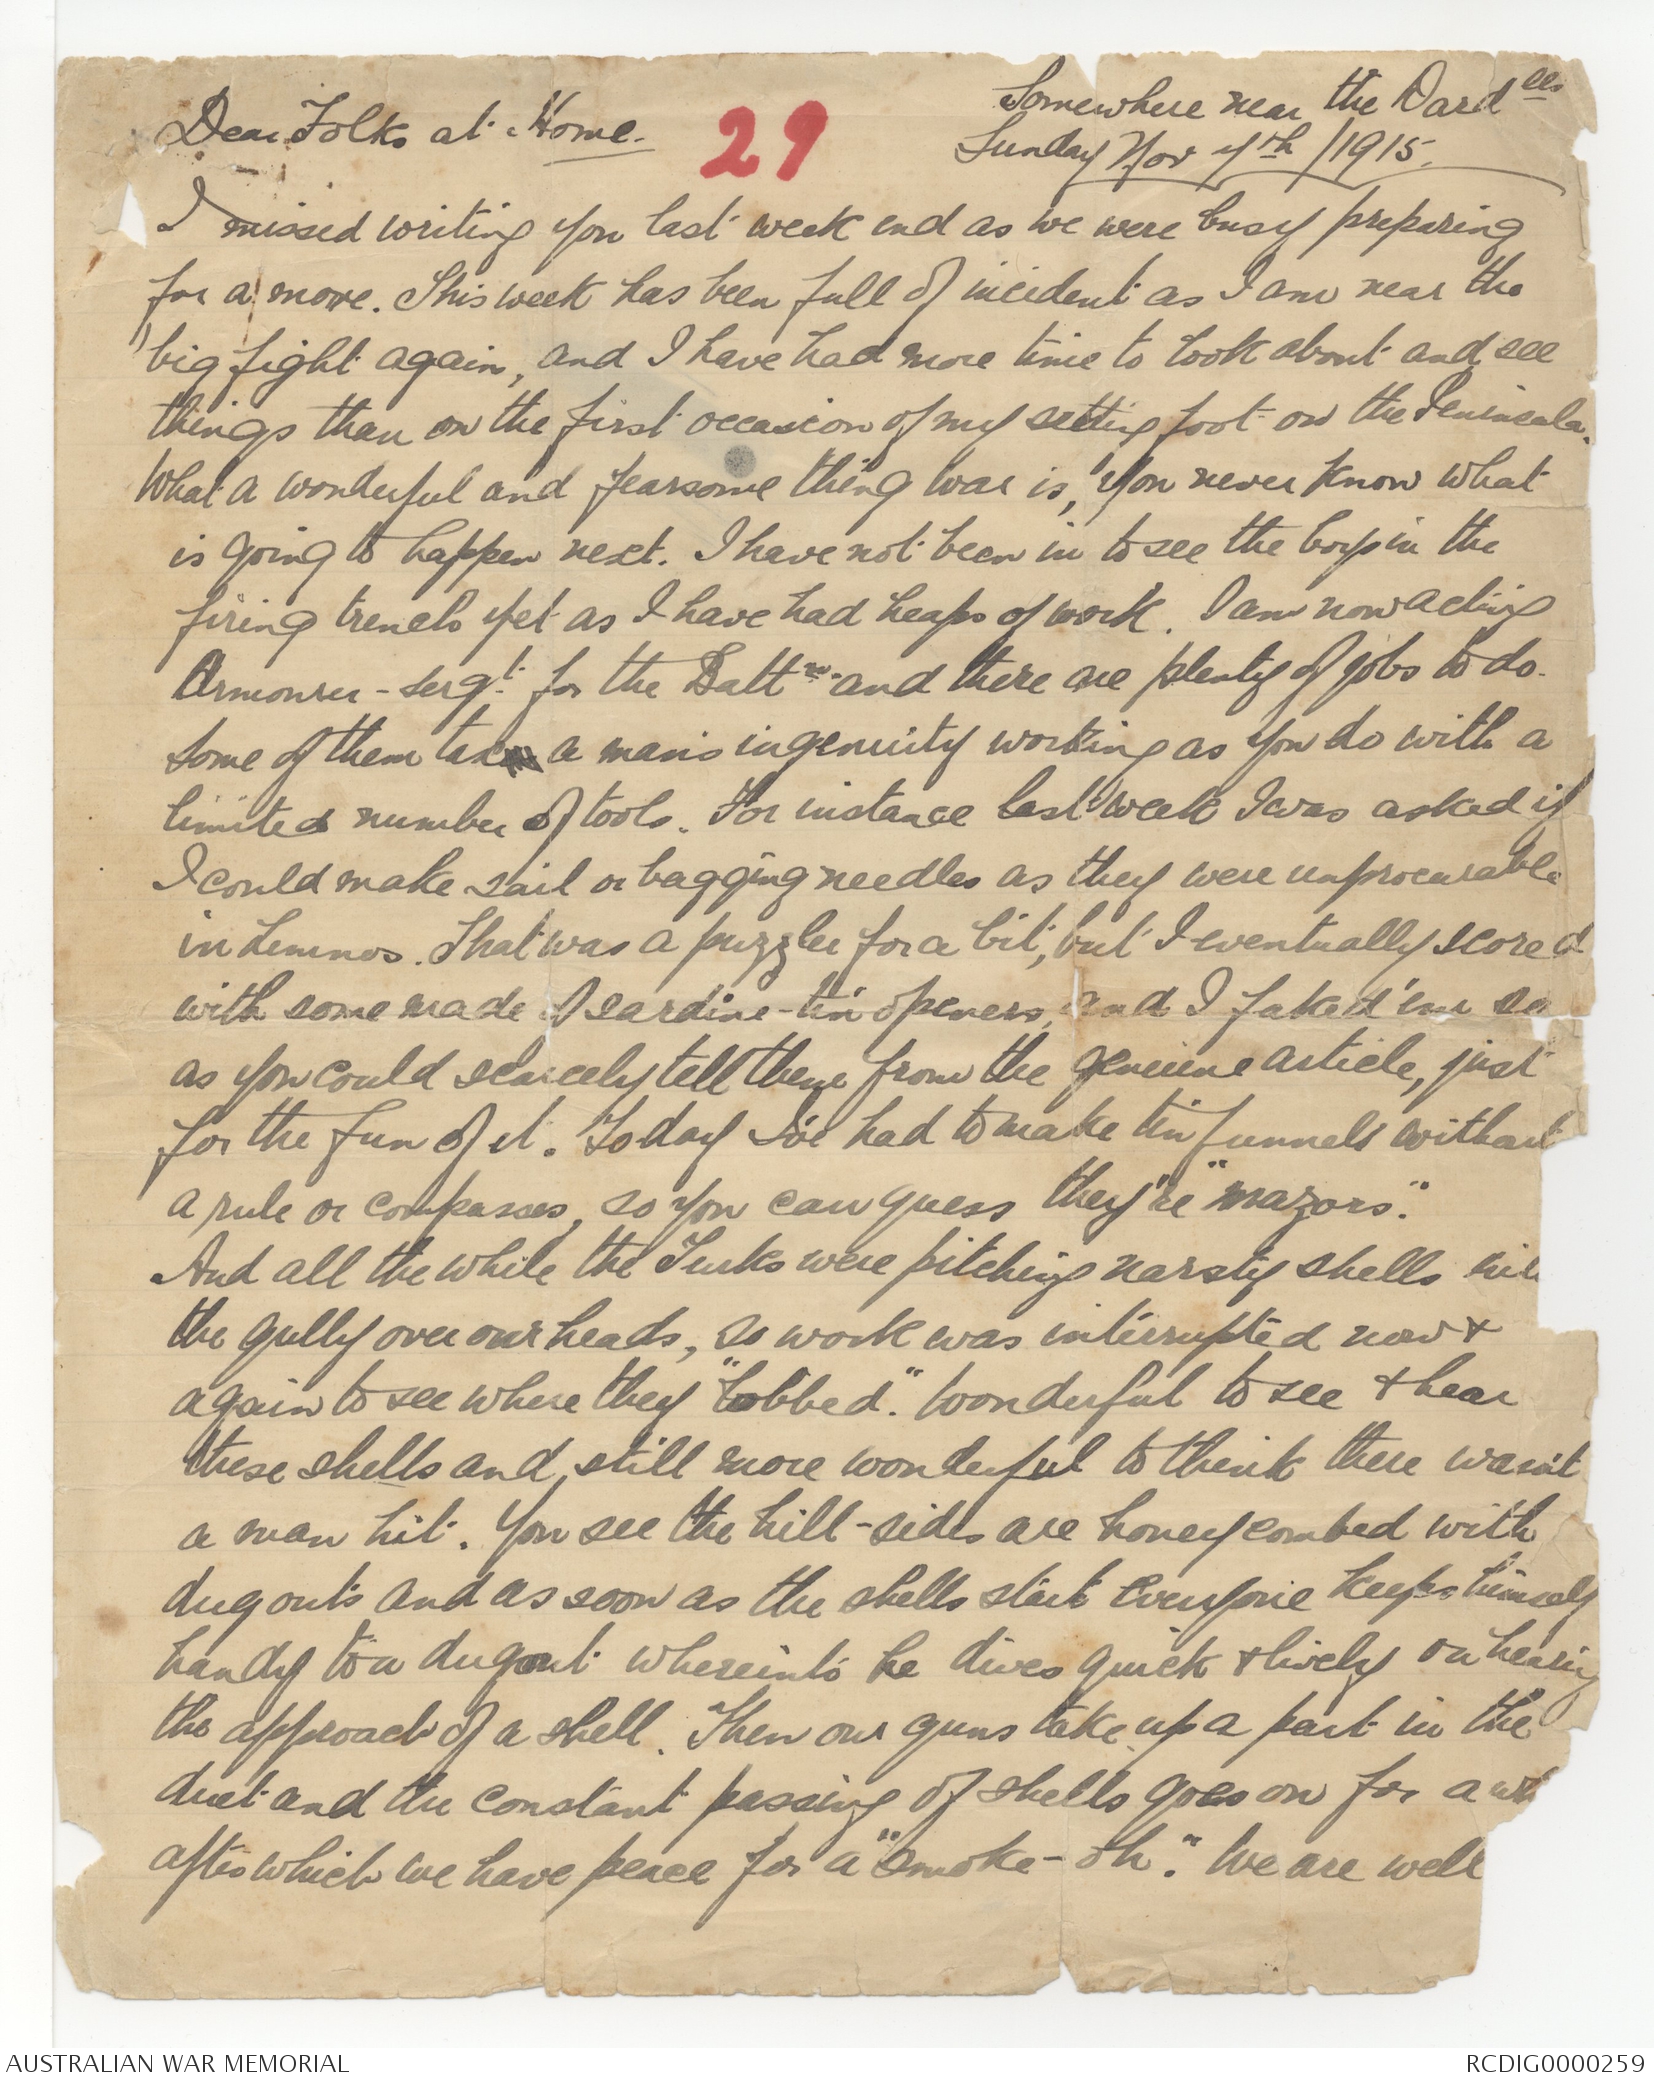 Somewhere near the Dard^lls
Dear Folks at Home. 29
Sunday Nov 7th /1915.
I missed writing you last week end as we were busy preparing
for a move. This week has been full of incident as I am near the
big fight again, and I have had more time to look about and see
things than on the first occasion of my setting foot on the Peninsula.
What a wonderful and fearsome thing war is, you never know what
is going to happen next. I have not been in to see the boys in the
firing trench yet as I have had heaps of work. I am now acting
Armourer-sergt. for the Battn. and there are plenty of jobs to do.
Some of them tax a man's ingenuity working as you do with a
limited number of tools. For instance last week I was asked if
I could make sail or bagging needles as they were unprocurable
in Lemnos. That was a puzzler for a bit, but I eventually scored
with some made of sardine-tin openers, and I faked 'em so
as you could scarcely tell them from the genuine article, just
for the fun of it. Today I've had to make tin funnels without
a rule or compasses, so you can guess they're "mazors".
And all the while the Turks were pitching narsty shells
the gully over our heads, so work was interrupted now &
again to see where they "lobbed". Wonderful to see & hear
these shells and, still more wonderful to think there wasn't
a man hit. You see the hill-sides are honeycombed with
dugouts and as soon as the shells start everyone keeps himself
handy to a dugout whereinto he dives quick & lively on hearing
the approach of a shell. Then our guns take up a part in the
duet and the constant passing of shells goes on for a
after which we have peace for a "smoke-oh". We are well
AUSTRALIAN WAR MEMORIAL
RCDIG0000259